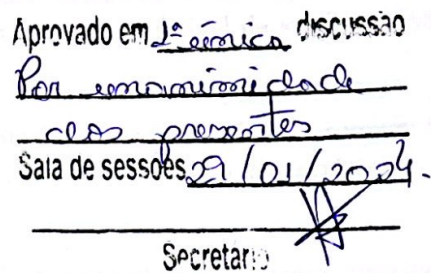 Aprovado em 1ª única discussão
Por unanimidade
dos presentes
Sala de sessões 29/01/2024.
Secretario